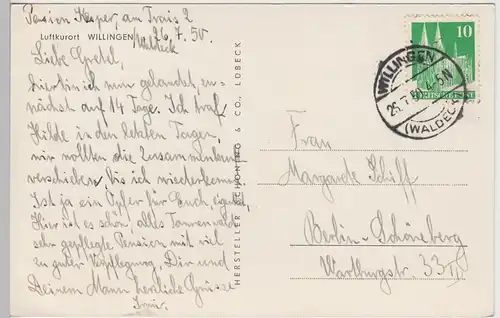 Pension Kesper, am Trais 2
Luftkurort WILLINGEN
Waldeck 26.7.50.
Liebe Gretel,
hierhin ich nun gelandet, zu-
nächst auf 14 Tage. Ich traf
Hilde in den letzten Tagen,
wir wollten die Zusammenkunft
verschieben, bis ich wiederkomme.
Ist ja ein Opfer für Euch
Hier ist es schön, alles Tannenwald
sehr gepflegte Pension mit viel
zu guter Verpflegung. Dir und
Deinem Mann herzliche Grüsse
HERSTELLER SCHÖNING & CO., LÜBECK
10
DEUTSCHE POST
WILLINGEN
(WALDECK)
Frau
Margarete Schiff
Berlin-Schöneberg
Wartburgstr. 33 II